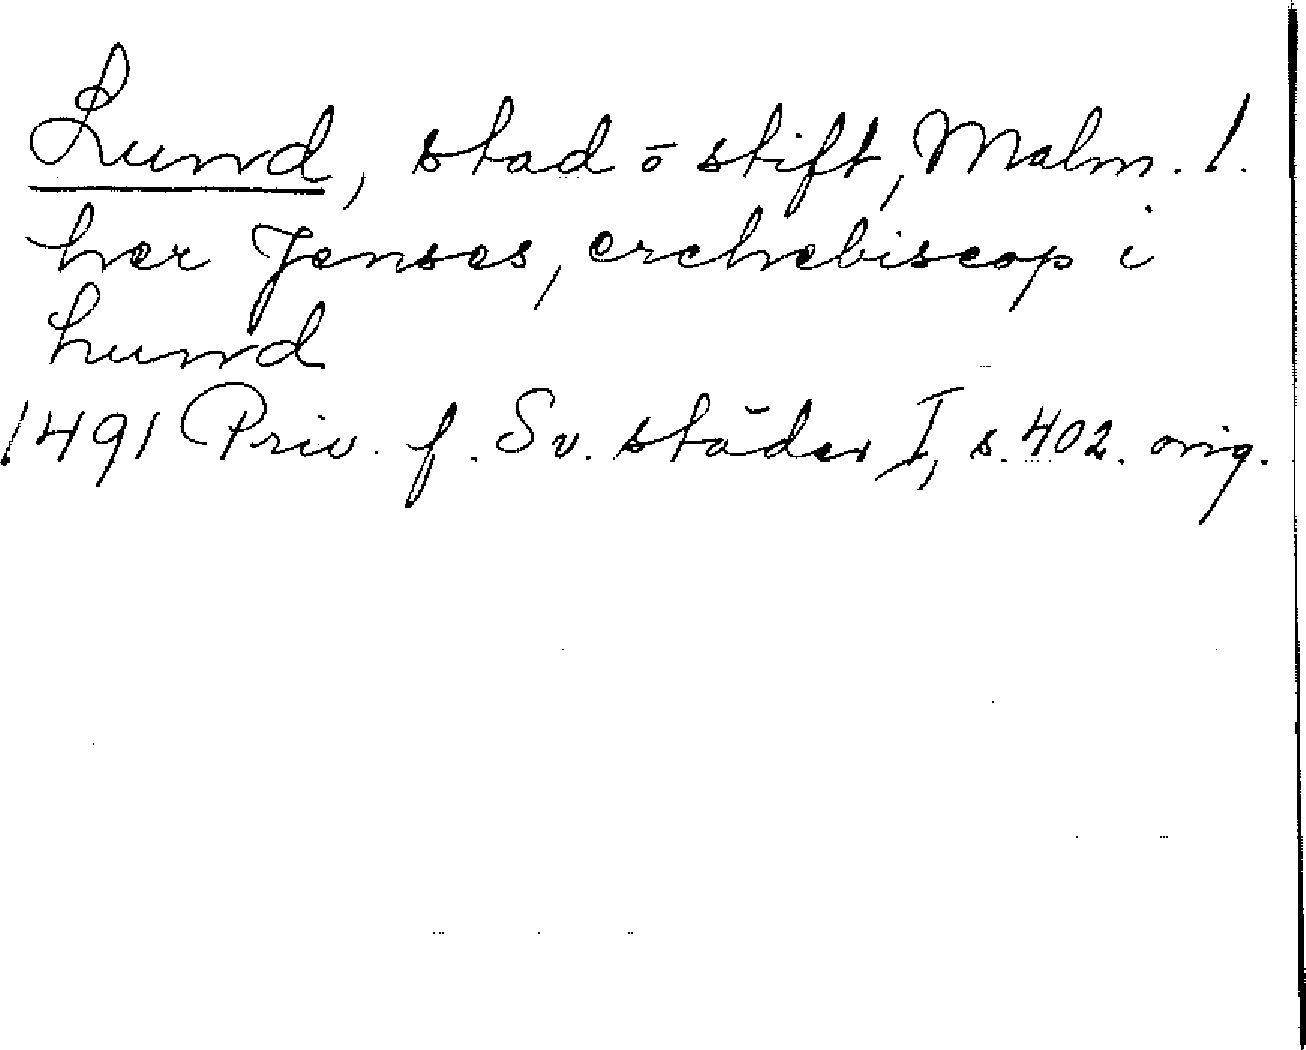 Lund, stad o stift, Malm. l.
her Jenses, erchebiscop i
Lund
1491 Priv. f. Sv. städer I, s. 402. orig.